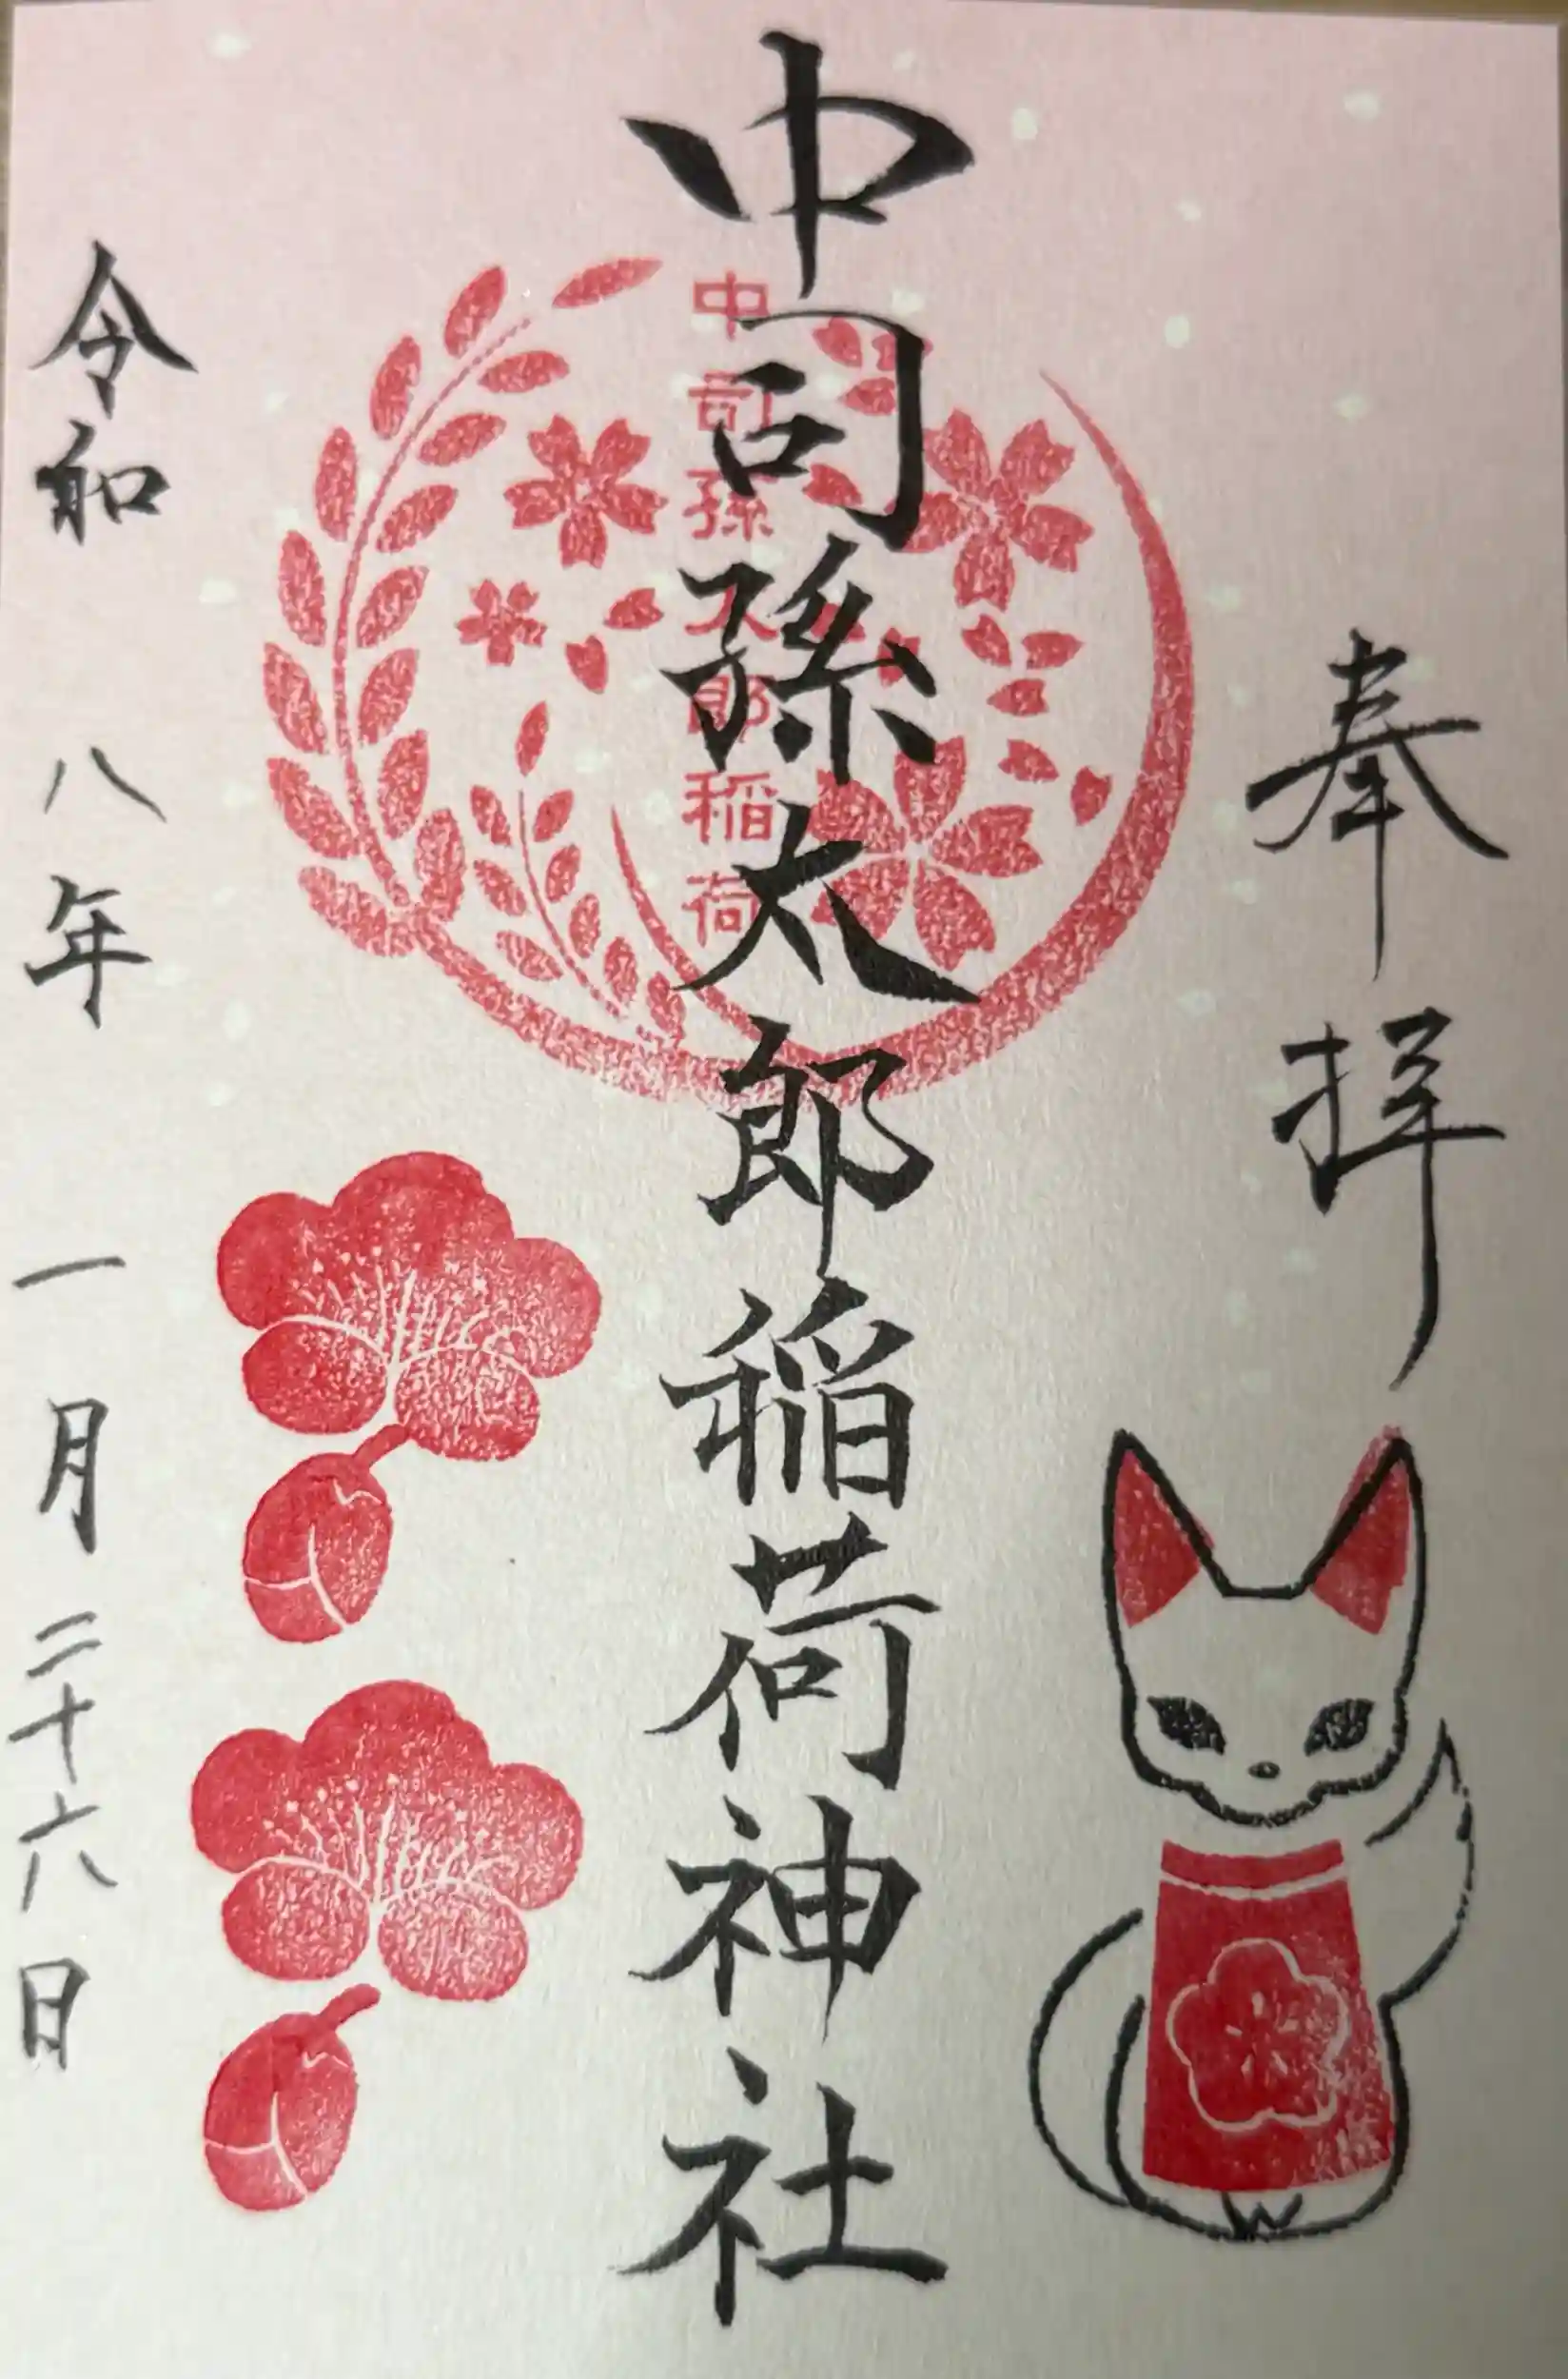 奉拝
中司孫太郎稲荷神社
中司孫太郎稲荷
令和八年一月二十六日